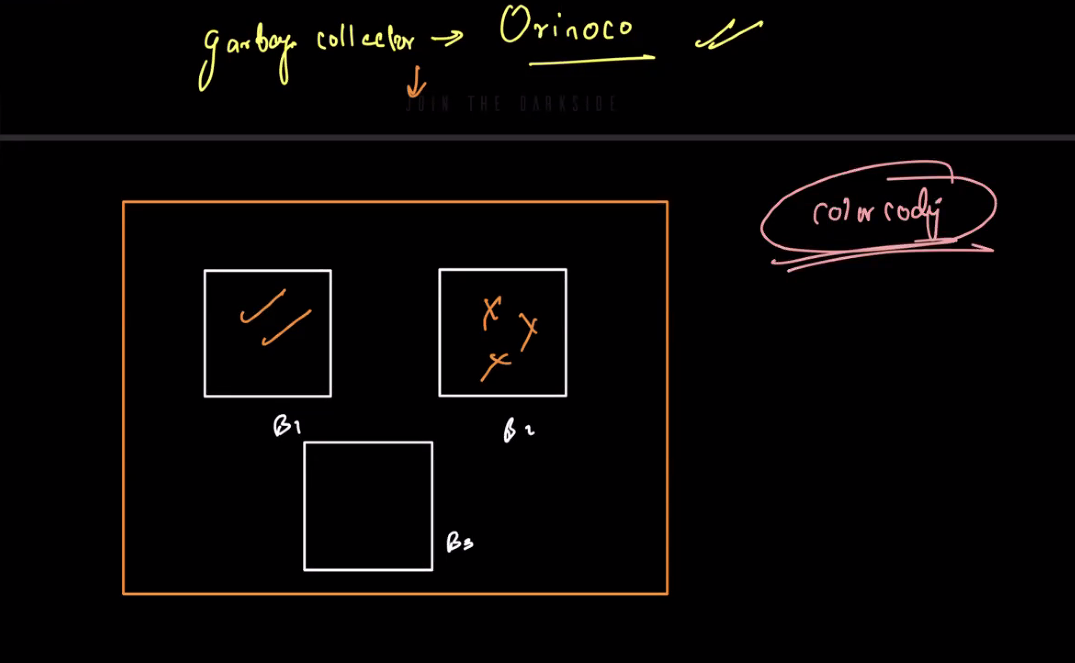 garbage collector → Orinoco
JOIN THE DARKSIDE
color codij
B1
B2
B3